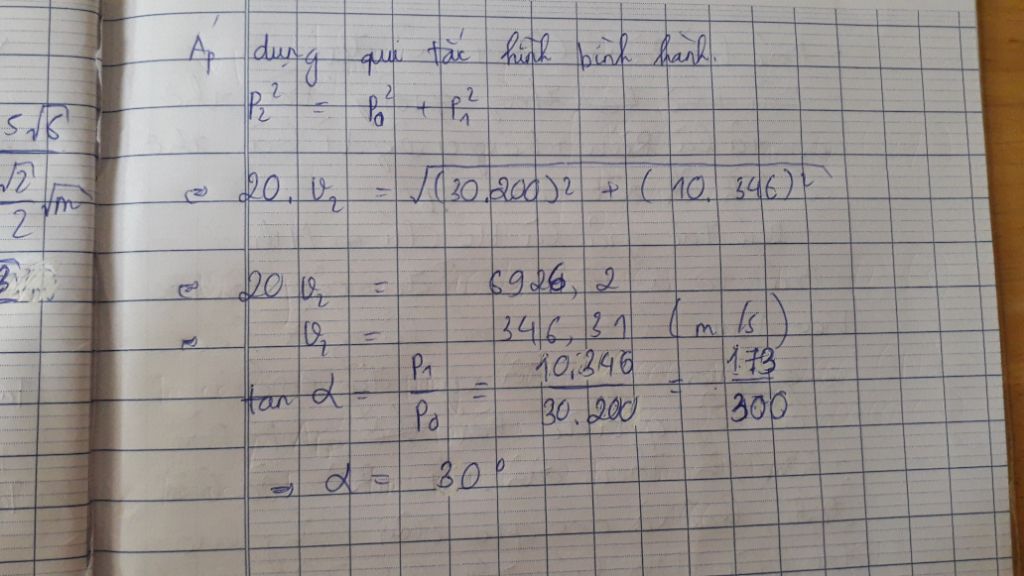 Áp dụng qui tắc hình bình hành.
P₂² = P₀² + P₁²
5√6
⇔ 20. v₂ = √(30.200)² + (10. 346)²
√2
2 √m
⇔ 20 v₂ = 6926, 2
⇔ v₂ = 346, 31 (m/s)
tan α = P₁/P₀ = 10.346/30.200 = 173/300
⇒ α = 30°